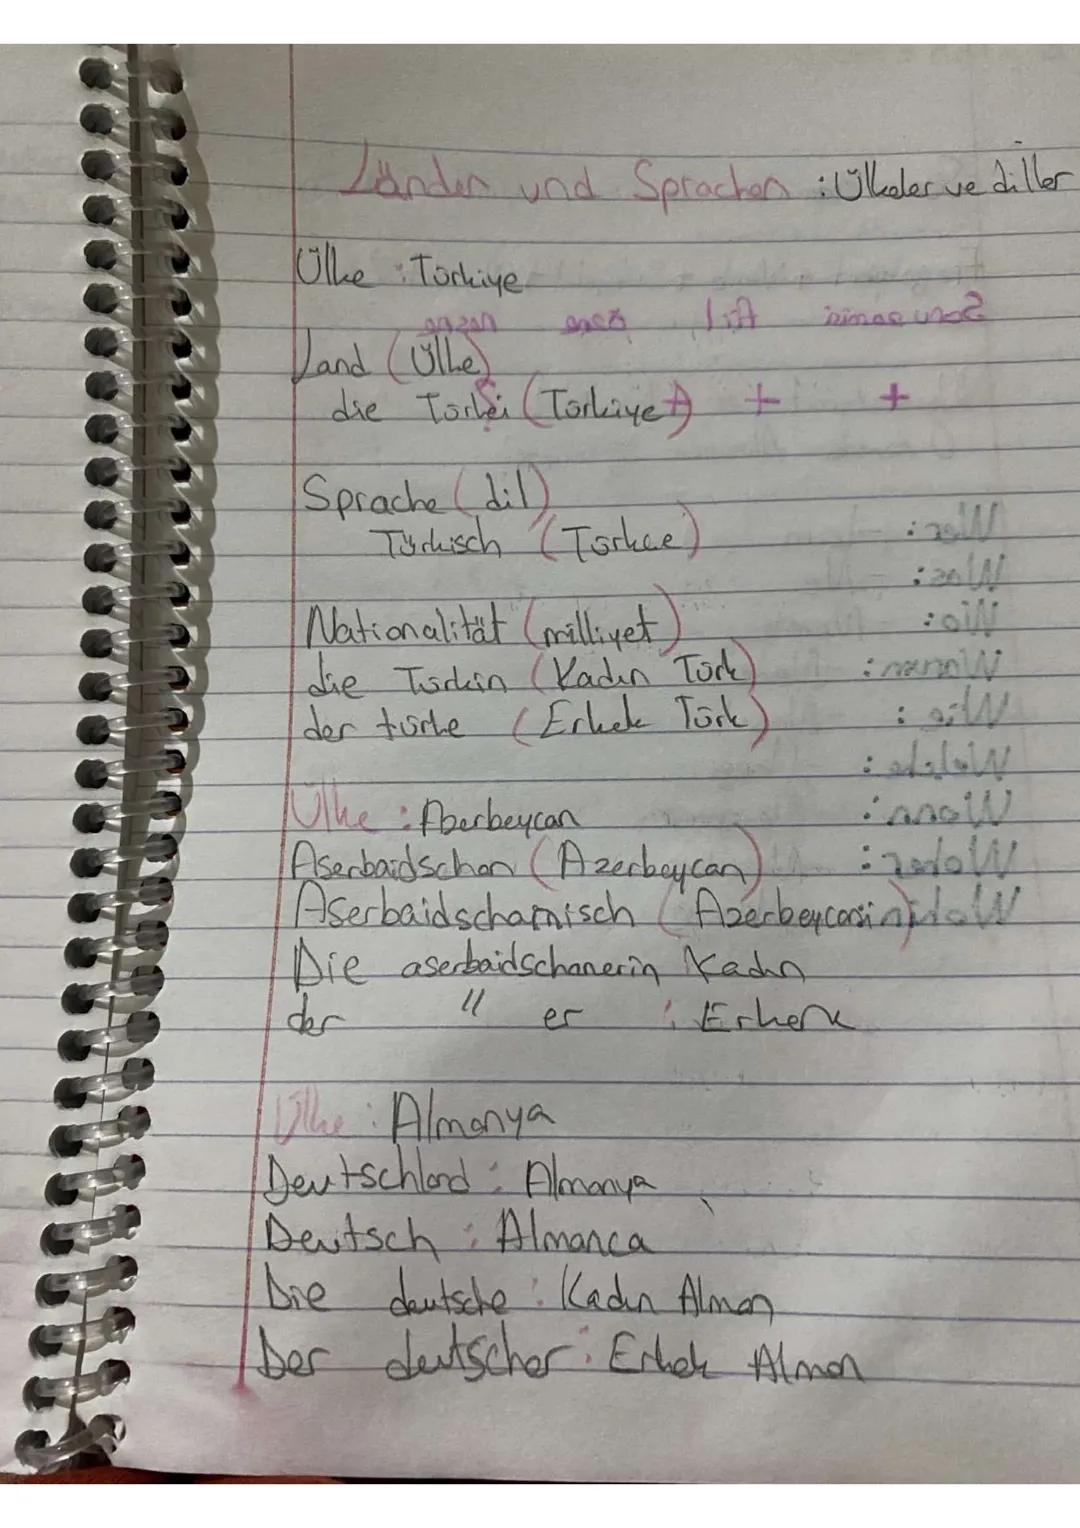 Länder und Sprachen : Ülkeler ve diller
Ülke : Türkiye
Land (Ülke)
die Türkei (Türkiye)
+ +
Sprache (dil)
Türkisch (Türkçe)
Nationalität (milliyet)
die Türkin (Kadın Türk)
der türke (Erkek Türk)
Ülke : Aberbeycan
Aserbaidschan (Azerbeycan)
Aserbaidschamisch (Azerbeycani)
Die aserbaidschanerin Kadın
der " er : Erkenk
Ülke : Almanya
Deutschland : Almanya
Deutsch : Almanca
Die deutsche : Kadın Alman
Der deutscher : Erkek Alman